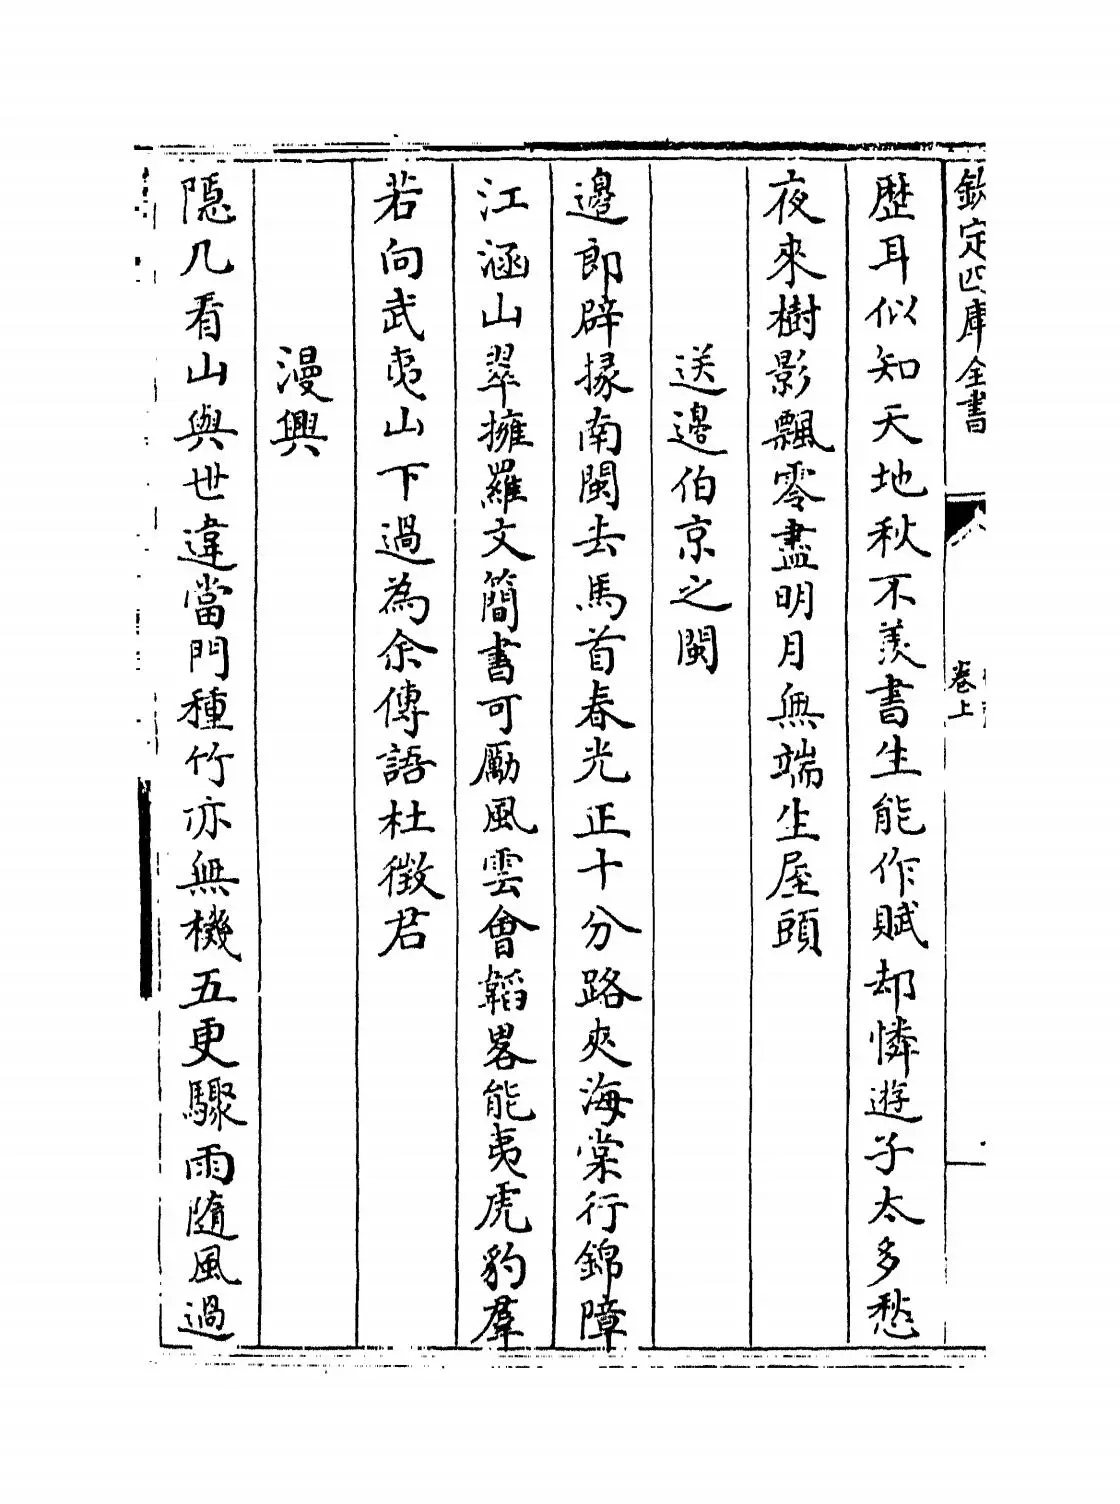 欽定四庫全書
卷上
歷耳似知天地秋不羨書生能作賦却憐遊子太多愁
夜來樹影飄零盡明月無端生屋頭
送邊伯京之閩
邊郎辟掾南閩去馬首春光正十分路夾海棠行錦障
江涵山翠擁羅文簡書可勵風雲會韜畧能夷虎豹羣
若向武夷山下過為余傳語杜徵君
漫興
隱几看山與世違當門種竹亦無機五更驟雨隨風過